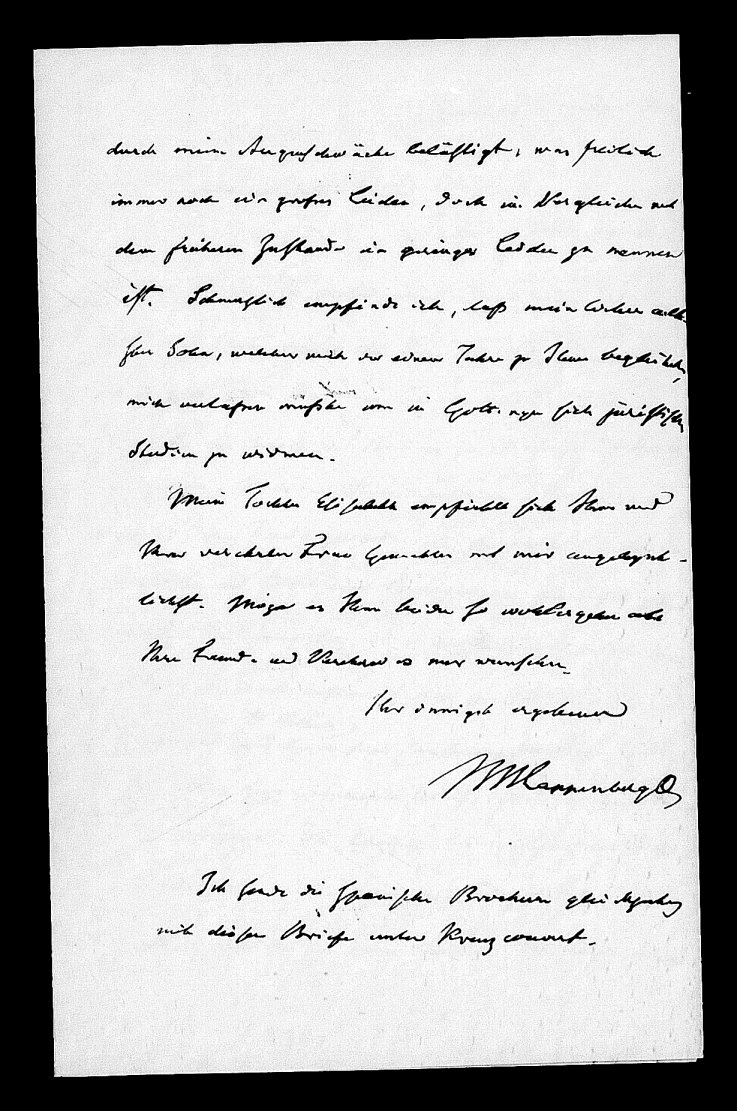 durch meine Augenschwäche belästigt, was freilich
immer noch ein großes Leiden, doch im Vergleiche mit
dem früheren Zustande ein geringes Leiden zu nennen
ist. Schmerzlich empfinde ich, daß mein lieber
Sohn, welcher mich vor einem Jahre zu Ihnen begleitete,
mich verlassen mußte um in Göttingen sich juristischen
Studien zu widmen.
Meine Tochter Elisabeth empfiehlt sich Ihnen und
Ihrer verehrten Frau Gemahlin mit mir angelegent-
lichst. Möge es Ihnen beiden so wohl ergehen als
Ihre Freunde und Verehrer es nur wünschen.
Ihr innigst ergebener
Ich sende die spanische Brochure gleichzeitig
mit diesem Briefe unter Kreuzcouvert.